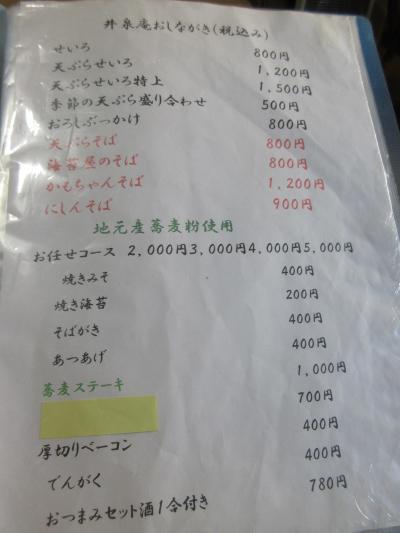 井泉庵おしながき(税込み)
せいろ 800円
天ぷらせいろ 1,200円
天ぷらせいろ特上 1,500円
季節の天ぷら盛り合わせ 500円
おろしぶっかけ 800円
天ぷらそば 800円
海苔屋のそば 800円
かもちゃんそば 1,200円
にしんそば 900円
地元産蕎麦粉使用
お任せコース 2,000円3,000円4,000円5,000円
焼きみそ 400円
焼き海苔 200円
そばがき 400円
あつあげ 400円
蕎麦ステーキ 1,000円
700円
厚切りベーコン 400円
でんがく 400円
おつまみセット酒1合付き 780円